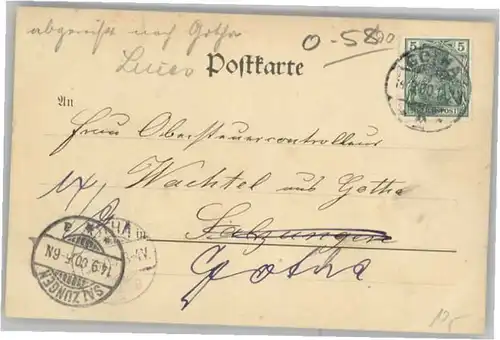 abgereist nach Gotha
0-58
Postkarte
5 5
An
Frau Obersteuercontrolleur
Wachtel aus Gotha
Salzungen
Gotha
SALZUNGEN
14.9.00.5-6N
10,-